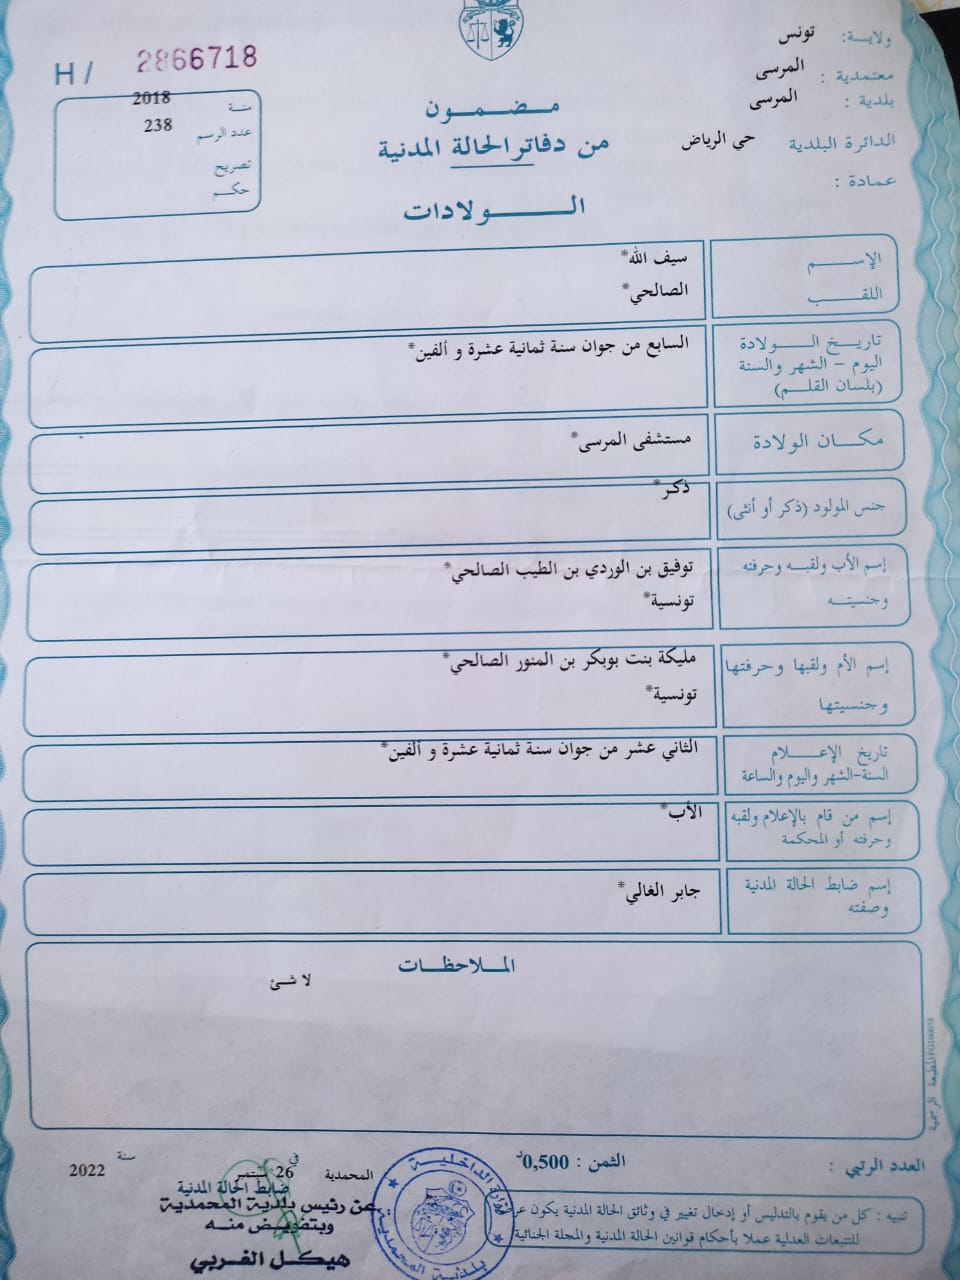 ولاية: تونس
معتمدية : المرسى
بلدية : المرسى
الدائرة البلدية حي الرياض
عمادة :
H / 2866718
سنة 2018
عدد الرسم 238
تصريح
حكم
مضمون
من دفاتر الحالة المدنية
الولادات
الإسم سيف الله*
اللقب الصالحي*
تاريخ الولادة
اليوم - الشهر والسنة
(بلسان القلم)
السابع من جوان سنة ثمانية عشرة و ألفين*
مكان الولادة مستشفى المرسى*
جنس المولود (ذكر أو أنثى) ذكر*
إسم الأب ولقبه وحرفته
وجنسيته
توفيق بن الوردي بن الطيب الصالحي*
تونسية*
إسم الأم ولقبها وحرفتها
وجنسيتها
مليكة بنت بوبكر بن المنور الصالحي*
تونسية*
تاريخ الإعلام
السنة-الشهر واليوم والساعة
الثاني عشر من جوان سنة ثمانية عشرة و ألفين*
إسم من قام بالإعلام ولقبه
وحرفته أو المحكمة
الأب*
إسم ضابط الحالة المدنية
وصفته
جابر الغالي*
الملاحظات
لا شئ
المطبعة الرسمية
العدد الرتبي :
الثمن : 0,500د
المحمدية في 26 سبتمبر سنة 2022
ضابط الحالة المدنية
عن رئيس بلدية المحمدية
وبتفويض منه
هيكل الغربي
وزارة الداخلية
بلدية المحمدية
تنبيه : كل من يقوم بالتدليس أو إدخال تغيير في وثائق الحالة المدنية يكون
للتتبعات العدلية عملا بأحكام قوانين الحالة المدنية والمجلة الجنائية